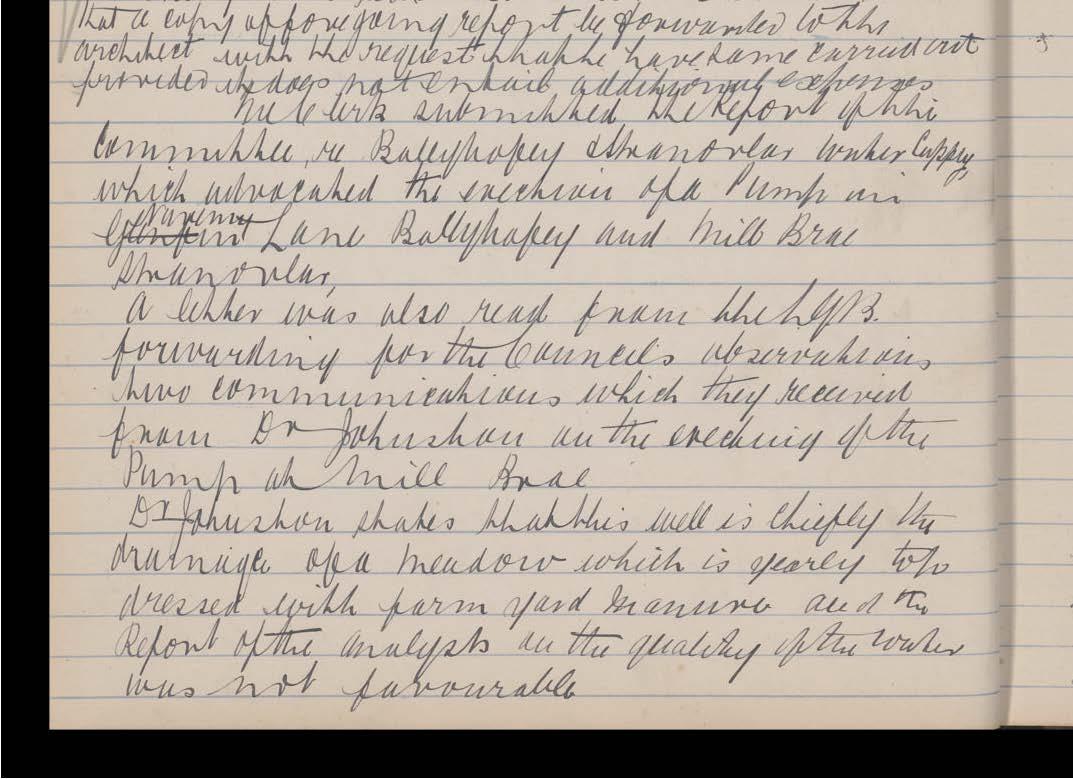 that a copy of foregoing report be forwarded to the
architect with the request that he have same carried out
provided it does not entail additional expenses
The Clerk submitted the Report of the
Committee, re Ballybofey & Stranorlar Water Supply,
which advocated the erection of a Pump in
Lane Ballybofey and Mill Brae
Stranorlar,
A letter was also read from the L G B.
forwarding for the Councils observations
two communications which they received
from Dr Johnston on the erecting of the
Pump at Mill Brae
Dr Johnston states that this well is chiefly the
drainage of a meadow which is yearly top
dressed with farm yard manure and the
Report of the analysts on the quality of the water
was not favourable